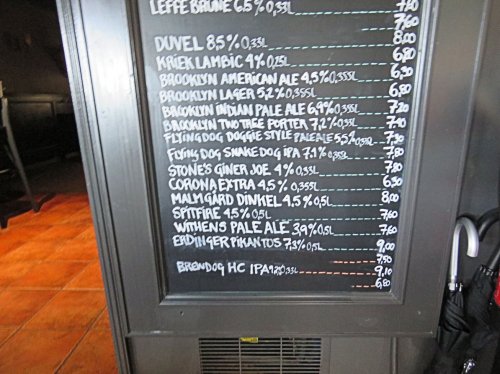 LEFFE BRUNE 6.5% 0,33L 7,80
7,60
DUVEL 8.5% 0,33L 8,00
KRIEK LAMBIC 4% 0,25L 6,80
BROOKLYN AMERICAN ALE 4,5% 0,355L 6,90
BROOKLYN LAGER 5,2% 0,355L 6,80
BROOKLYN INDIAN PALE ALE 6,9% 0,355L 7,20
BROOKLYN TWO TREE PORTER 7,2% 0,33L
FLYING DOG DOGGIE STYLE PALE ALE 5,5% 7,30
FLYING DOG SNAKE DOG IPA 7,1% 0,355L 7,80
STONE'S GINER JOE 4% 0,33L 7,80
CORONA EXTRA 4,5% 0,355L 6,90
MALMGÅRD DINKEL 4,5% 0,5L 8,00
SPITFIRE 4,5% 0,5L 7,60
WITHENS PALE ALE 3,9% 0,5L 7,60
ERDINGER PIKANTUS 7,3% 0,5L 9,00
7,50
BREWDOG HC IPA 0,33L 9,10
6,80